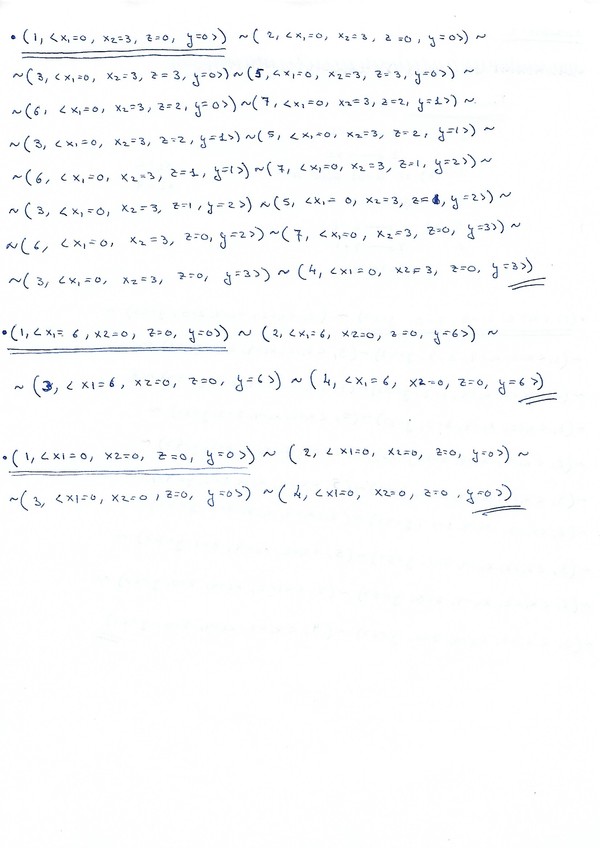 • (1, <x₁=0, x₂=3, z=0, y=0>) ~ (2, <x₁=0, x₂=3, z=0, y=0>) ~
~(3, <x₁=0, x₂=3, z=3, y=0>) ~ (5, <x₁=0, x₂=3, z=3, y=0>) ~
~(6, <x₁=0, x₂=3, z=2, y=0>) ~ (7, <x₁=0, x₂=3, z=2, y=1>) ~
~(3, <x₁=0, x₂=3, z=2, y=1>) ~ (5, <x₁=0, x₂=3, z=2, y=1>) ~
~(6, <x₁=0, x₂=3, z=1, y=1>) ~ (7, <x₁=0, x₂=3, z=1, y=2>) ~
~(3, <x₁=0, x₂=3, z=1, y=2>) ~ (5, <x₁=0, x₂=3, z=1, y=2>) ~
~(6, <x₁=0, x₂=3, z=0, y=2>) ~ (7, <x₁=0, x₂=3, z=0, y=3>) ~
~(3, <x₁=0, x₂=3, z=0, y=3>) ~ (4, <x1=0, x2=3, z=0, y=3>)
• (1, <x₁=6, x2=0, z=0, y=0>) ~ (2, <x1=6, x2=0, z=0, y=6>) ~
~ (3, <x1=6, x2=0, z=0, y=6>) ~ (4, <x1=6, x2=0, z=0, y=6>)
• (1, <x1=0, x2=0, z=0, y=0>) ~ (2, <x1=0, x2=0, z=0, y=0>) ~
~(3, <x1=0, x2=0, z=0, y=0>) ~ (4, <x1=0, x2=0, z=0, y=0>)